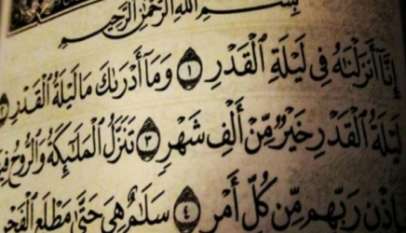 بِسْمِ اللَّهِ الرَّحْمَٰنِ الرَّحِيمِ
إِنَّا أَنزَلْنَاهُ فِي لَيْلَةِ الْقَدْرِ ١ وَمَا أَدْرَاكَ مَا لَيْلَةُ الْقَدْرِ ٢
لَيْلَةُ الْقَدْرِ خَيْرٌ مِّنْ أَلْفِ شَهْرٍ ٣ تَنَزَّلُ الْمَلَائِكَةُ وَالرُّوحُ فِيهَا
بِإِذْنِ رَبِّهِم مِّن كُلِّ أَمْرٍ ٤ سَلَامٌ هِيَ حَتَّىٰ مَطْلَعِ الْفَجْرِ